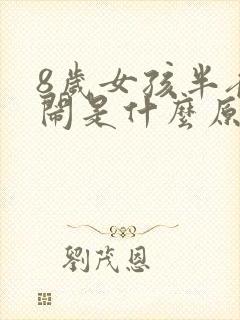 8歲女孩半
鬧是什麼原
劉茂恩